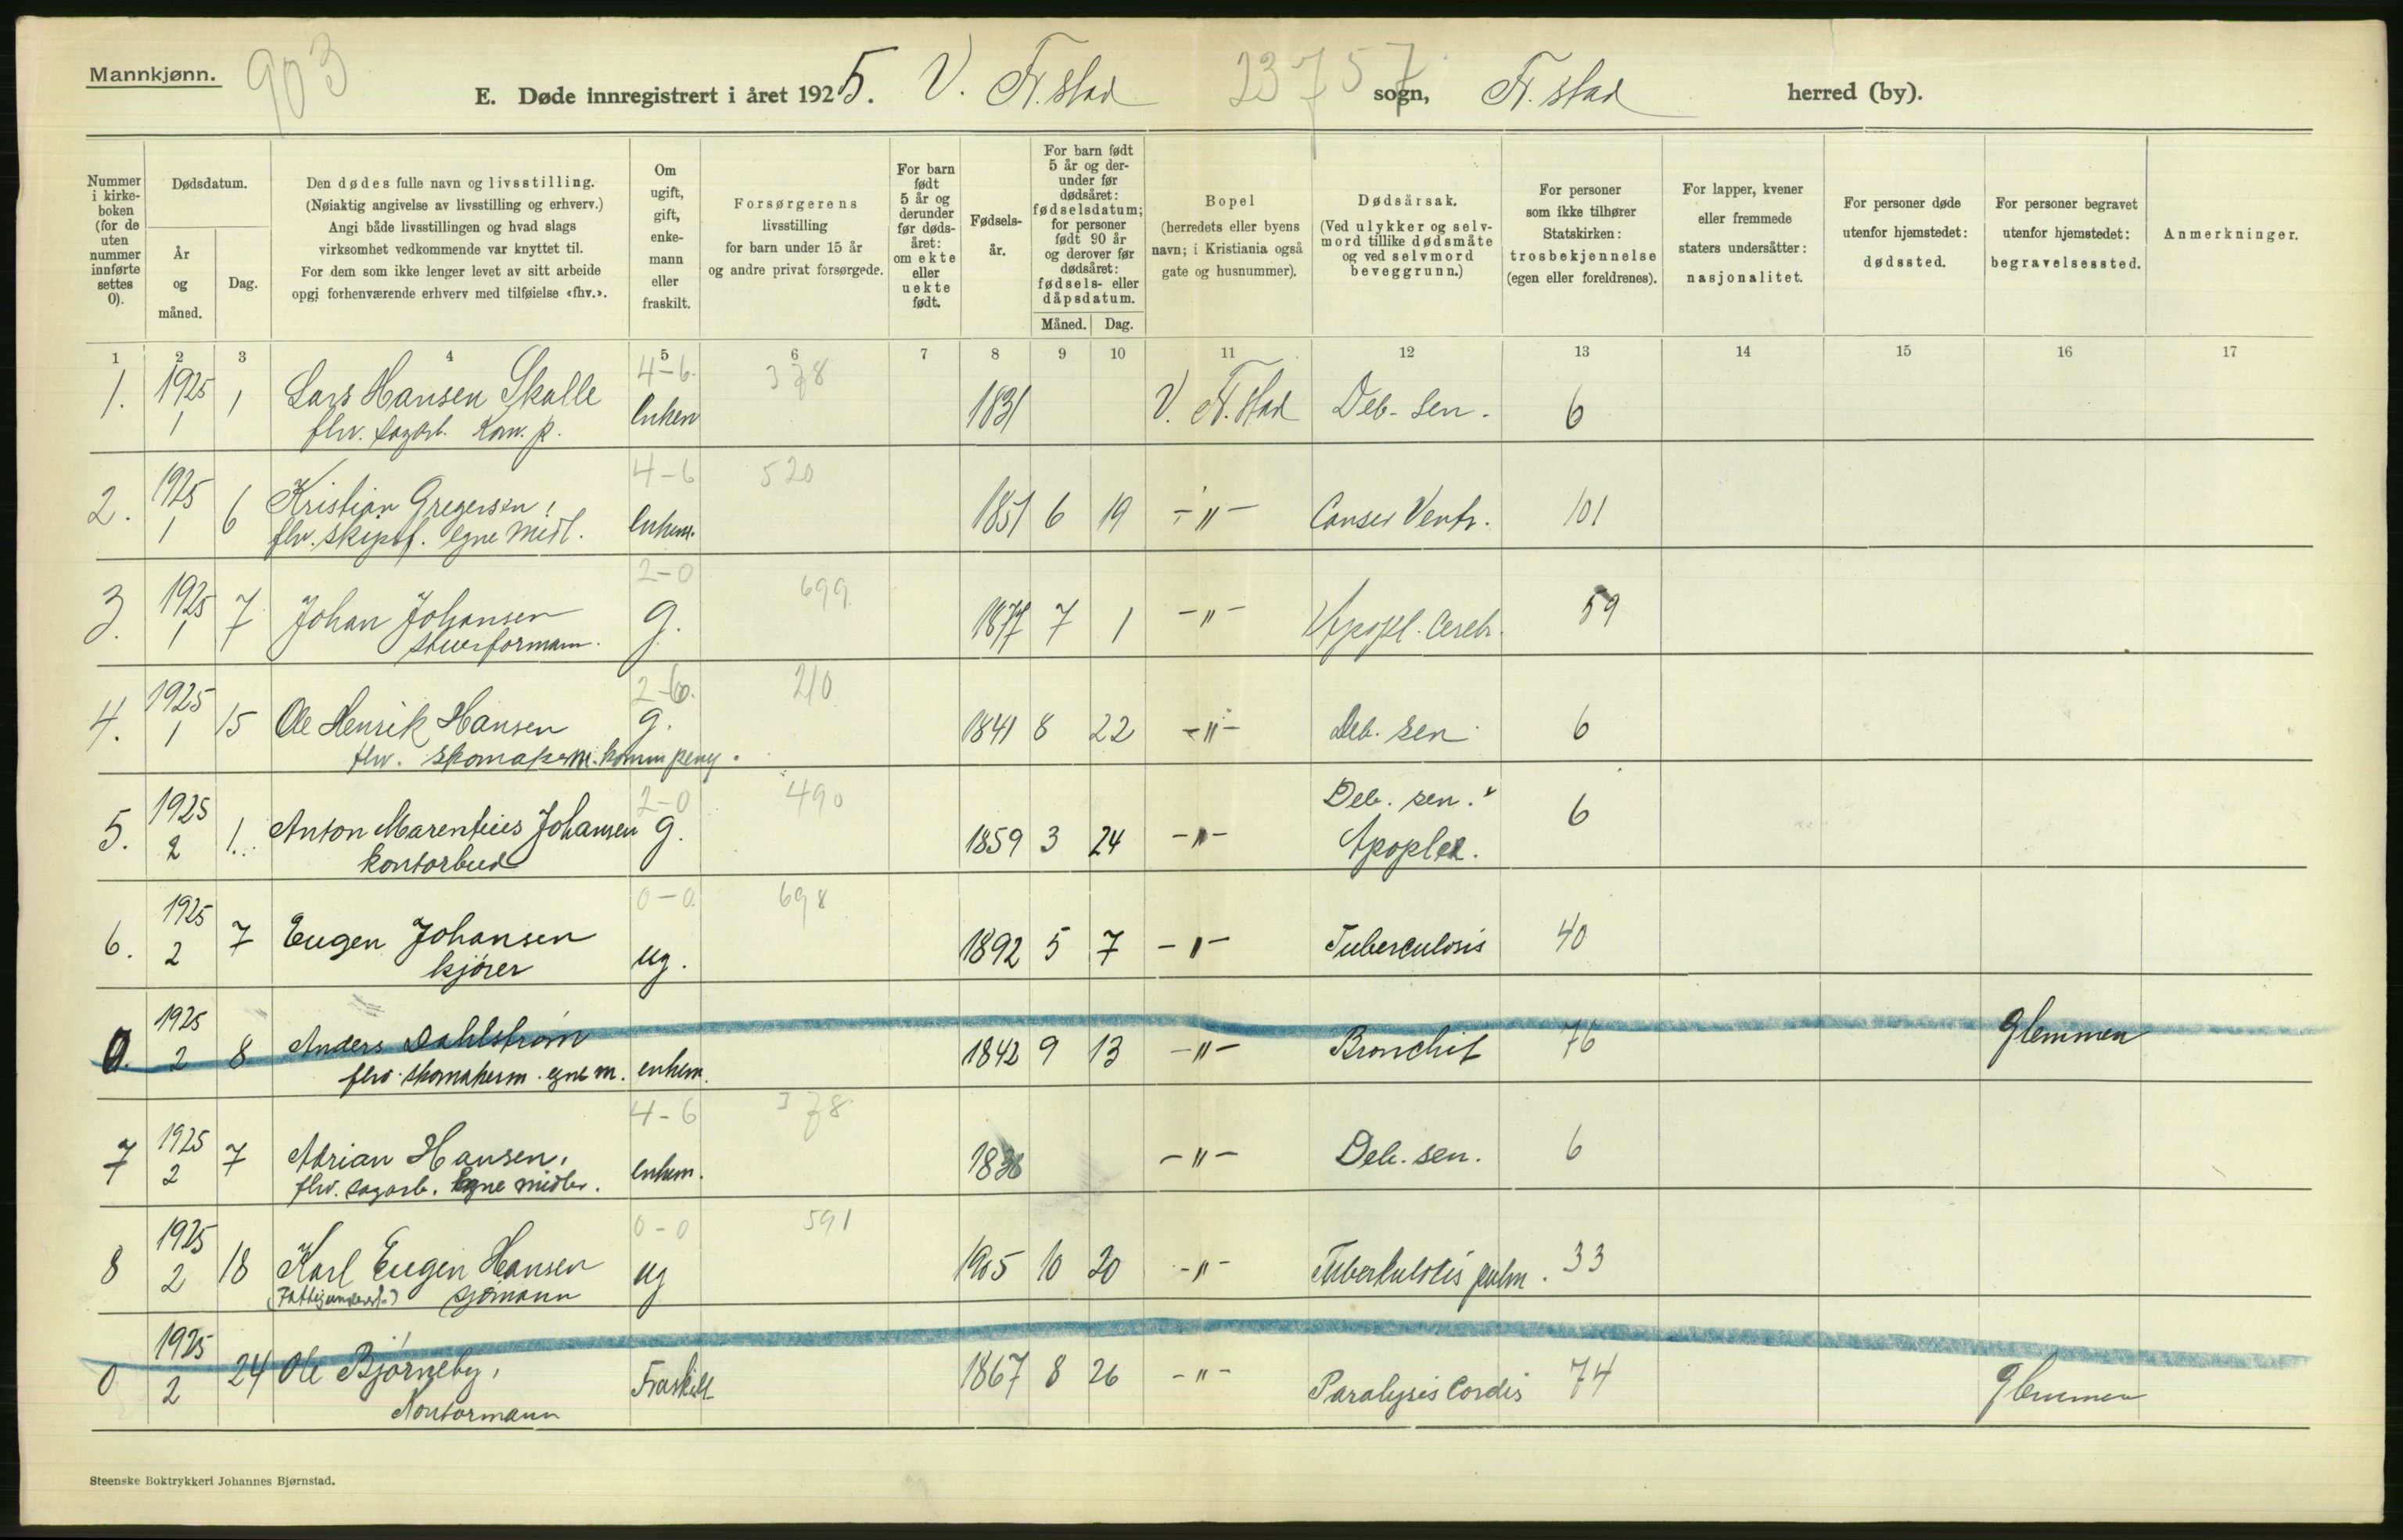 Mannkjønn.
903
E. Døde innregistrert i året 1925. V. Fr.stad 23757 sogn, Fr. stad herred (by).
Nummer i kirke- boken (for de uten nummer innførte settes 0).
Dødsdatum.
År og måned.
Dag.
Den dødes fulle navn og livsstilling.
(Nøiaktig angivelse av livsstilling og erhverv.)
Angi både livsstillingen og hvad slags
virksomhet vedkommende var knyttet til.
For dem som ikke lenger levet av sitt arbeide
opgi forhenværende erhverv med tilføielse «fhv.».
Om ugift, gift, enke- mann eller fraskilt.
Forsørgerens
livsstilling
for barn under 15 år
og andre privat forsørgede.
For barn født 5 år og derunder før døds- året: om ekte eller uekte født.
Fødsels- år.
For barn født 5 år og der- under før dødsåret: fødselsdatum; for personer født 90 år og derover før dødsåret: fødsels- eller dåpsdatum.
Måned. Dag.
Bopel
(herredets eller byens
navn; i Kristiania også
gate og husnummer).
Dødsårsak.
(Ved ulykker og selv-
mord tillike dødsmåte
og ved selvmord
beveggrunn.)
For personer
som ikke tilhører
Statskirken:
trosbekjennelse
(egen eller foreldrenes).
For lapper, kvener
eller fremmede
staters undersåtter:
nasjonalitet.
For personer døde
utenfor hjemstedet:
dødssted.
For personer begravet
utenfor hjemstedet:
begravelsessted.
Anmerkninger.
1 2 3 4 5 6 7 8 9 10 11 12 13 14 15 16 17
4-6. 378
1. 1925 1 1 Lars Hansen Skalle Enkem 1831 V. Fr. stad Deb. sen. 6
fhv. sagarb. Kom. p.
4-6 520
2. 1925 1 6 Kristian Gregersen, Enkem. 1851 6 19 -"- Canser Ventr. 101
fhv. skipsf. egne midl.
2-0 699
3. 1925 1 7 Johan Johansen g. 1877 7 1 -"- Apopl. Cereb. 59
stuerformann.
2-6. 210
4. 1925 1 15 Ole Henrik Hansen g. 1841 8 22 -"- Deb. sen 6
fhv. skomakerm. komm peng.
2-0 490
5. 1925 2 1. Anton Marentius Johansen g. 1859 3 24 -"- Deb. sen. 6
kontorbud Apoplex.
0-0. 698
6. 1925 2 7 Eugen Johansen ug. 1892 5 7 -"- Tuberculosis 40
kjører
0. 1925 2 8 Anders Dahlstrøm enkem. 1842 9 13 -"- Bronchit 76 Glemmen
fhv. skomakerm. egne m.
4-6 378
7 1925 2 7 Adrian Hansen, Enkem. 1836 -"- Deb. sen. 6
fhv. sagarb. Egne midler.
0-0 591
8 1925 2 18 Karl Eugen Hansen ug 1905 10 20 -"- Tuberkulosis pulm. 33
(Fattigunderst.) sjømann
0 1925 2 24 Ole Bjørneby, Fraskilt 1867 8 26 -"- Paralysis Cordis 74 Glemmen
Kontormann
Steenske Boktrykkeri Johannes Bjørnstad.